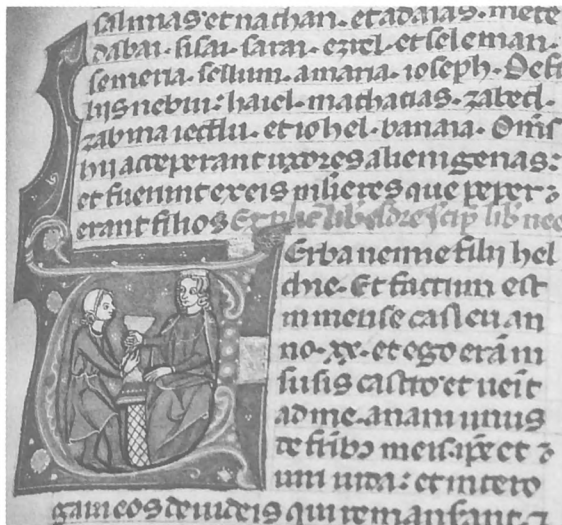 salmias et nathan. et adaias. mete
dabai. sisai. sarai. ezrel. et seleman.
semeria. sellum. amaria. ioseph. De fi
liis nebui: haiel. mathatias. zabed.
zabina ieddu. et iohel. banaia. Om̄s
hii acceperant uxores alienigenas:
et fuerunt ex eis mulieres que peper
erant filios Explic̄ lib̄ esdre Īcip̄ lib̄ nee
Erba neemie filii hel
chie. Et factum est
in mense casleu an
no. xx. et ego erā in
susis castro et ueīt
ad me. anani unus
de frībȝ meis. ip̄e et
uiri iuda: et intero
gaui eos de iudeis qui remanserant